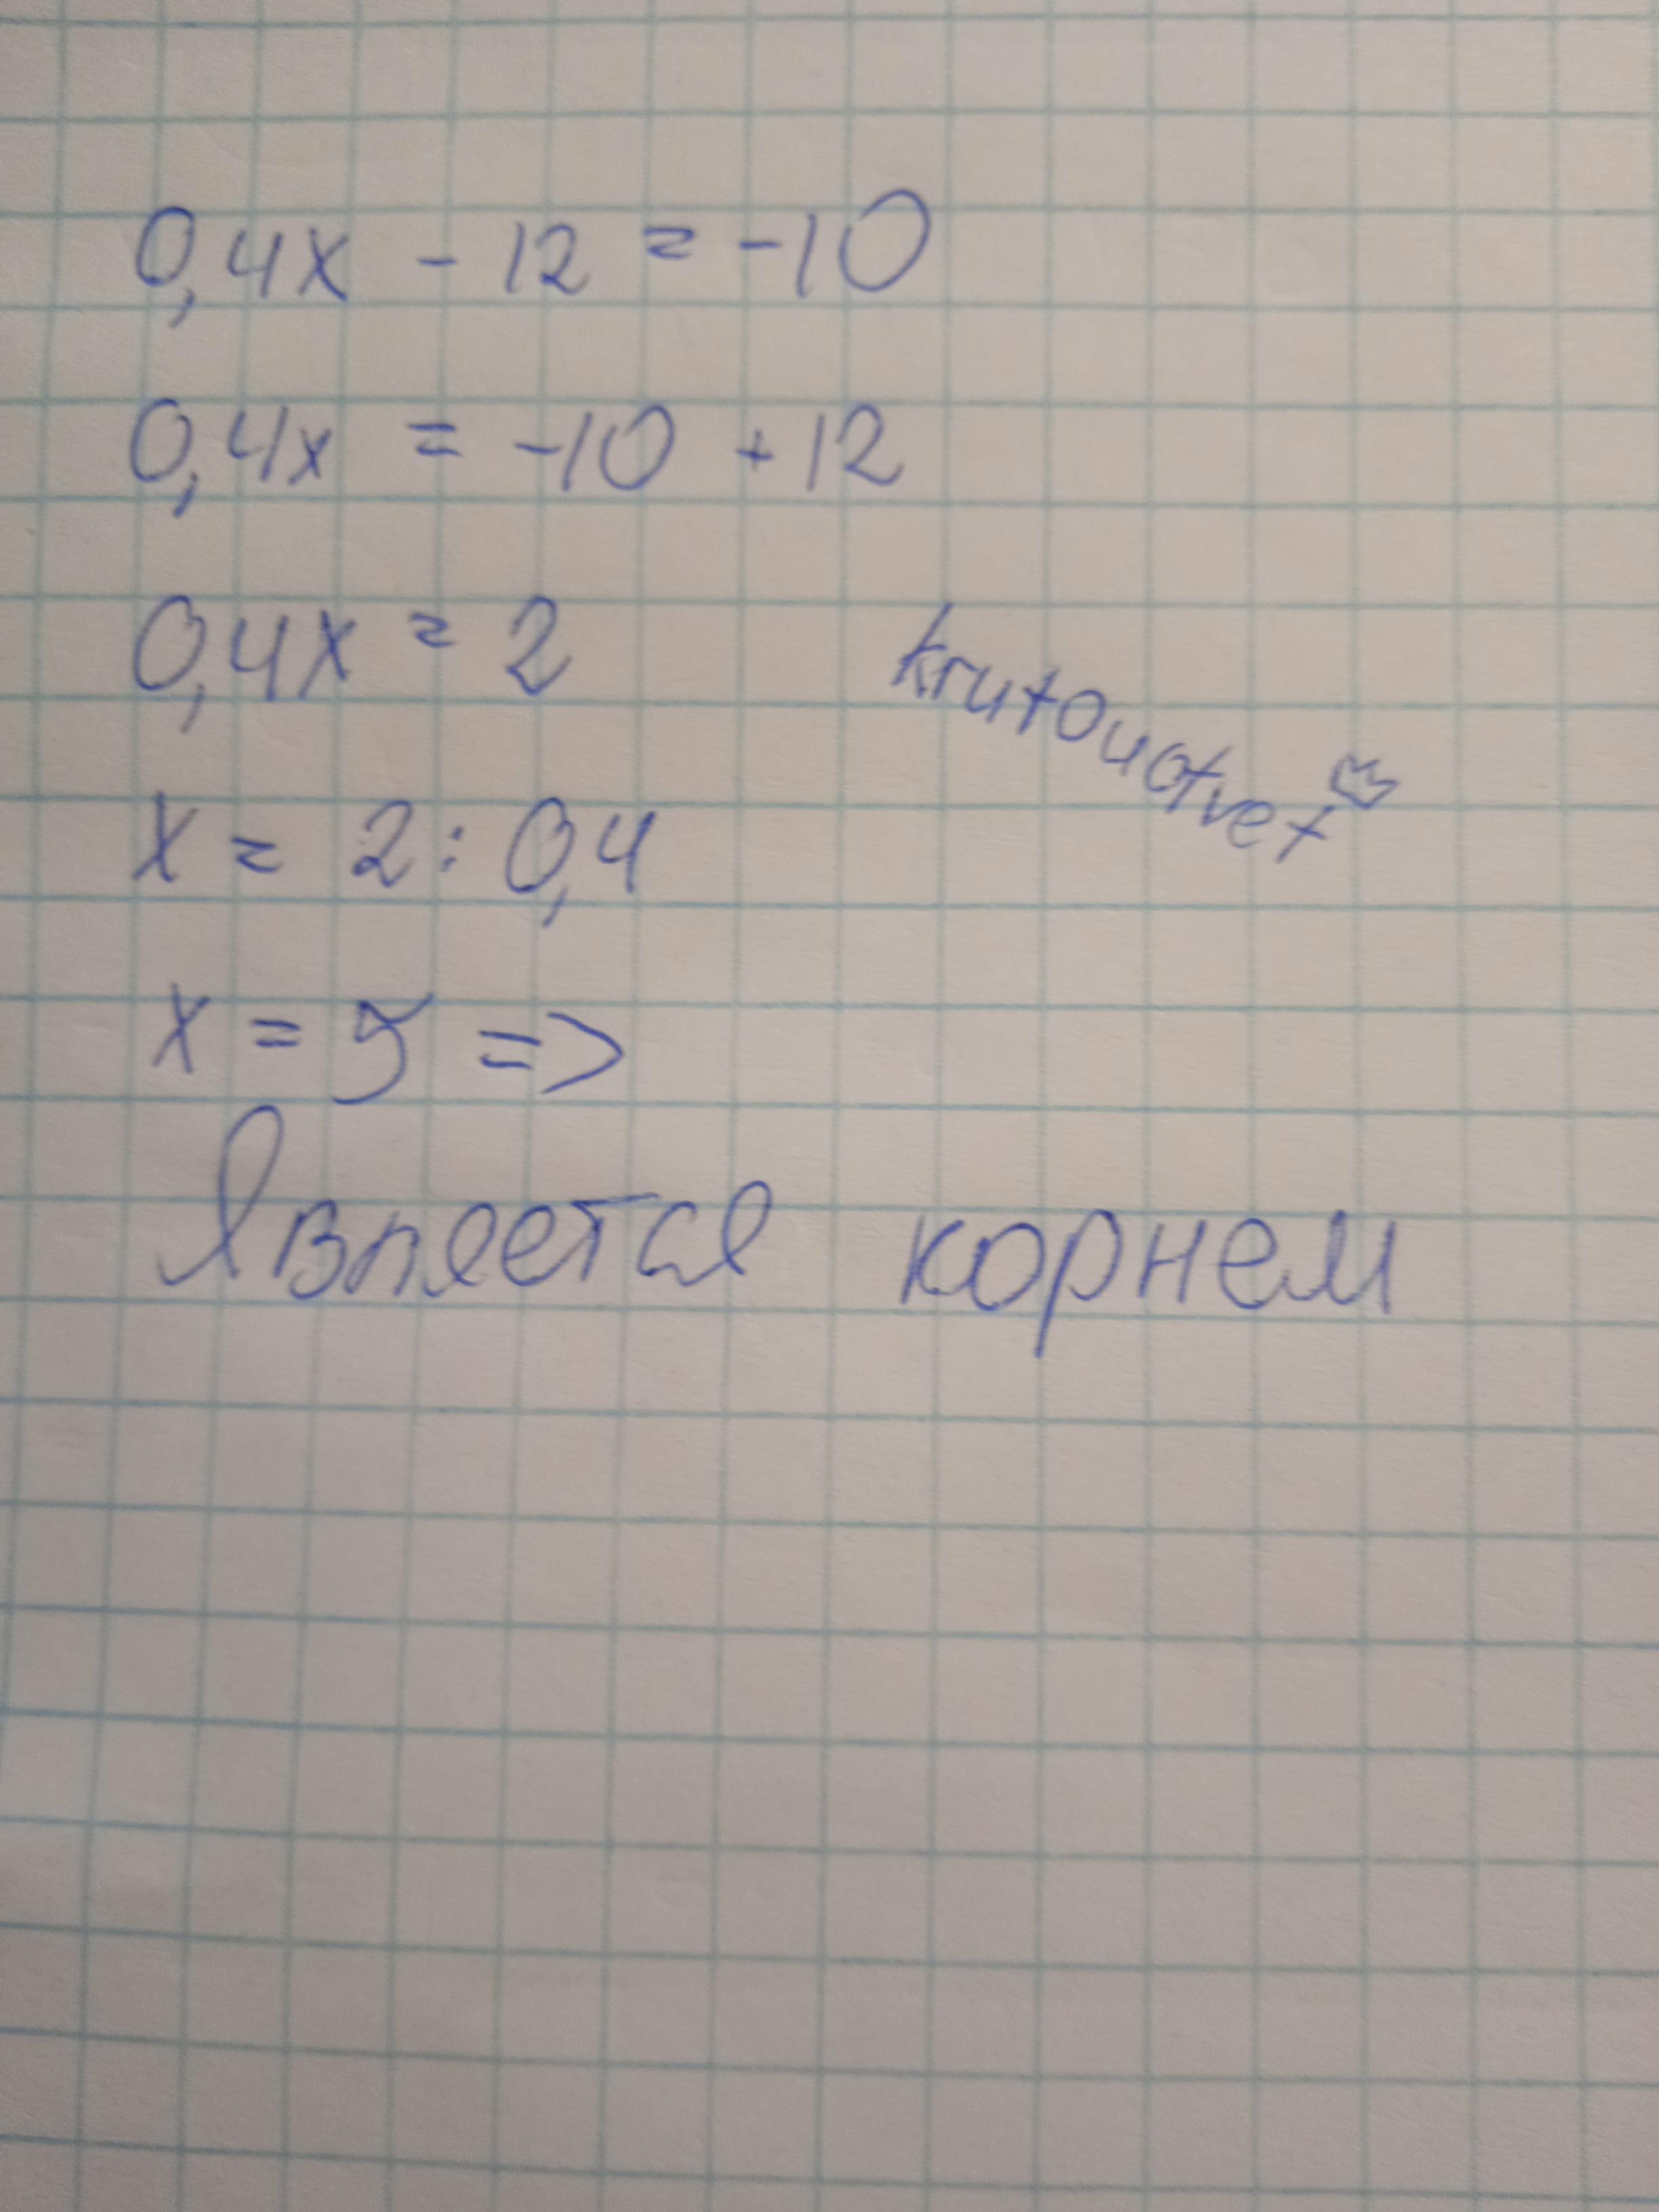 0,4x - 12 = -10
0,4x = -10 + 12
0,4x = 2
krutoyotvet
x = 2 : 0,4
x = 5 =>
Является корнем